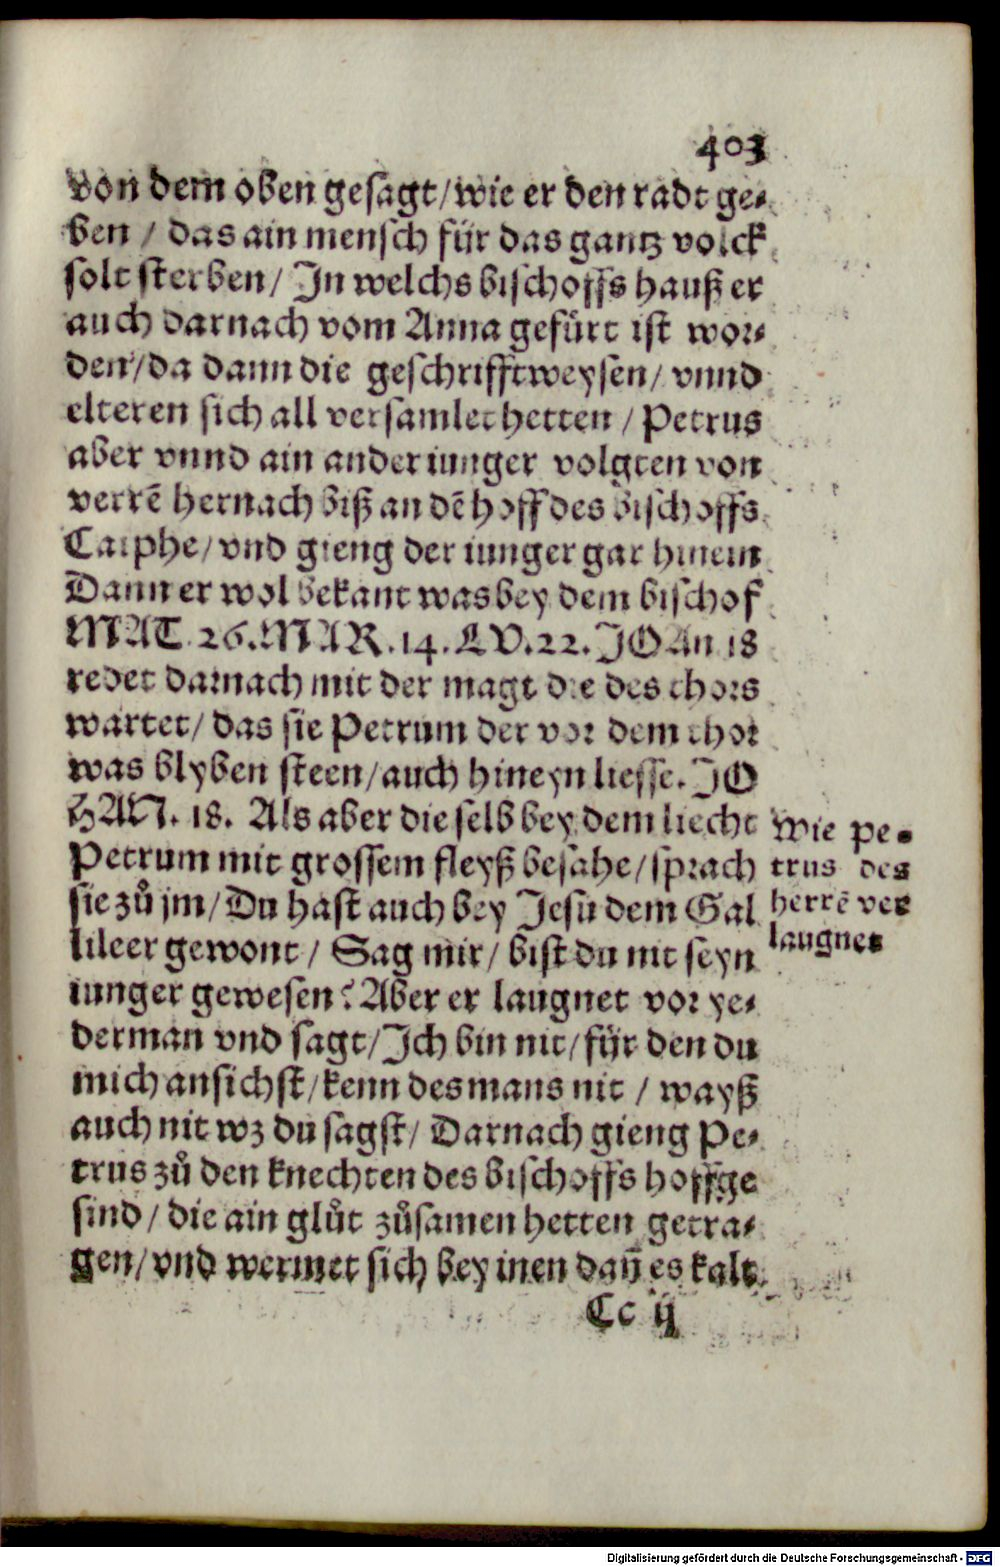 403
von dem oben gesagt/wie er den radt ge-
ben / das ain mensch für das gantz volck
solt sterben/ In welchs bischoffs hauß er
auch darnach vom Anna gefürt ist wor-
den/da dann die geschrifftweysen/ vnnd
elteren sich all versamlet hetten / Petrus
aber vnnd ain ander iunger volgten von
verrē hernach biß an dē hoff des bischoffs
Caiphe/vnd gieng der iunger gar hinein
Dann er wol bekant was bey dem bischof
MAT. 26. MAR. 14. LV. 22. JOAn 18
redet darnach mit der magt die des thors
wartet/ das sie Petrum der vor dem thor
was blyben steen/auch hineyn liesse. JO
HAN. 18. Als aber die selb bey dem liecht
Petrum mit grossem fleyß besahe/sprach
sie zů jm/Du hast auch bey Jesu dem Gal
lileer gewont / Sag mir/ bist du nit seyn
iunger gewesen? Aber er laugnet vor ye-
derman vnd sagt/Ich bin nit/für den du
mich ansichst/kenn des mans nit / wayß
auch nit wz du sagst/ Darnach gieng Pe-
trus zů den knechten des bischoffs hoffge
sind/ die ain glůt zůsamen hetten getra-
gen/vnd wermet sich bey inen dañ es kalt
Cc ij
Wie pe-
trus des
herrē ver
laugnet
Digitalisierung gefördert durch die Deutsche Forschungsgemeinschaft - DFG